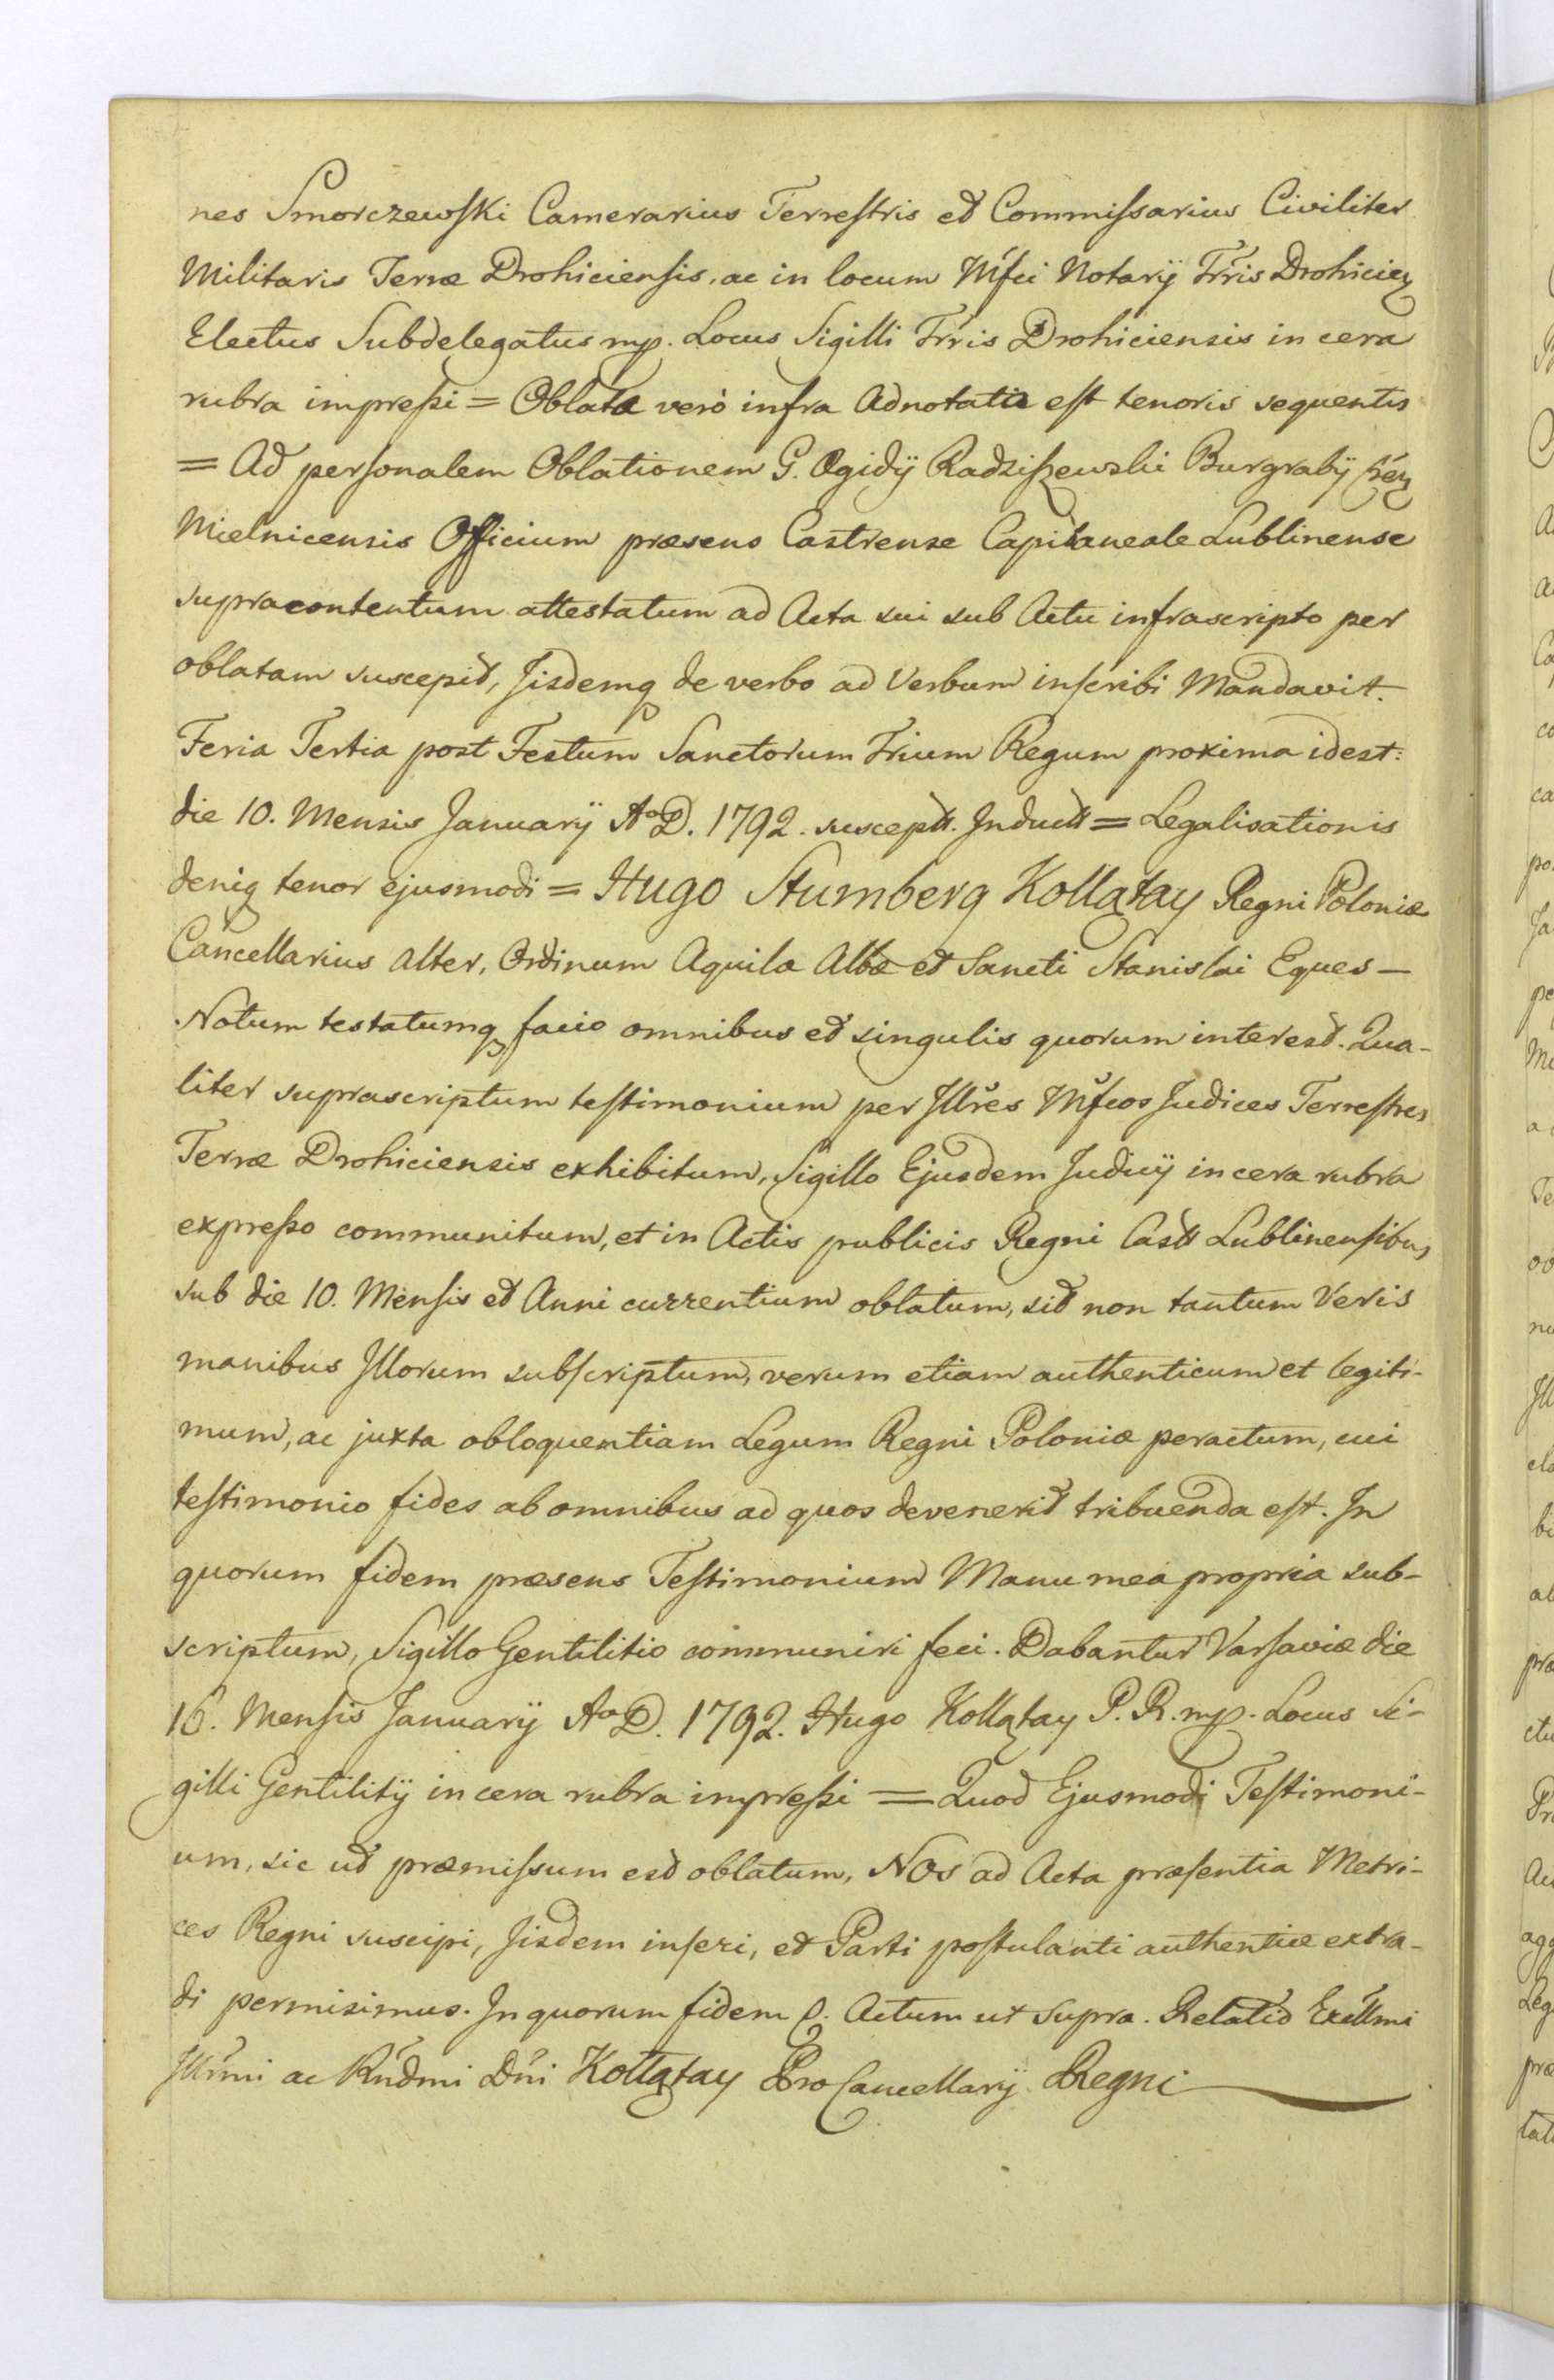 nes Smorczewski Camerarius Terrestris et Commissarius Civiliter
Militaris Terræ Drohiciensis, ac in locum Mfci Notarÿ Trris Drohicien
Electus Subdelegatus mp. Locus Sigilli Trris Drohiciensis in cera
rubra impressi = Oblata verò infra Adnotatia est tenoris sequentis
= Ad personalem Oblationem G. Ægidÿ Radziszewski Burgrabÿ
Mielnicensis Officium præsens Castrense Capitaneale Lublinense
supracontentum attestatum ad Acta sui sub Actu infrascripto per
oblatam suscepit, Jisdemq de verbo ad Verbum inscribi Mandavit.
Feria Tertia post Festum Sanctorum Trium Regum proxima idest:
die 10. Mensis Januarÿ AoD. 1792. suscept. Induct = Legalisationis
deniq tenor ejusmodi = Hugo Stumberg Kollątay Regni Poloniæ
Cancellarius alter, Ordinum Aquila Albæ et Sancti Stanislai Eques —
Notum testatumq facio omnibus et singulis quorum interest. Qua-
liter suprascriptum testimonium per Jllres Mfcos Judices Terrestres
Terræ Drohiciensis exhibitum, Sigillo Ejusdem Judicÿ in cera rubra
expresso communitum, et in Actis publicis Regni Castr Lublinensibus
sub die 10. Mensis et Anni currentium oblatum, sit non tantum Veris
manibus Jllorum subscriptum, verum etiam authenticum et legiti-
mum, ac juxta obloquentiam Legum Regni Poloniæ peractum, cui
testimonio fides ab omnibus ad quos devenerit tribuenda est. In
quorum fidem præsens Testimonium Manu mea propria sub-
scriptum, Sigillo Gentilitio communiri feci. Dabantur Varsaviæ die
16. Mensis Januarÿ AoD. 1792. Hugo Kollątay P. R. mp. Locus Si-
gilli Gentilitÿ in cera rubra impressi = Quod Ejusmodi Testimoni-
um, sic ut præmissum est oblatum, Nos ad Acta præsentia Metri-
ces Regni suscipi, Jisdem inseri, et Parti postulanti authentice extra-
di permisimus. In quorum fidem p. Actum ut Supra. Relatio Excllmi
Jllrmi ac Rndmi Dni Kollątay ProCancellarÿ Regni